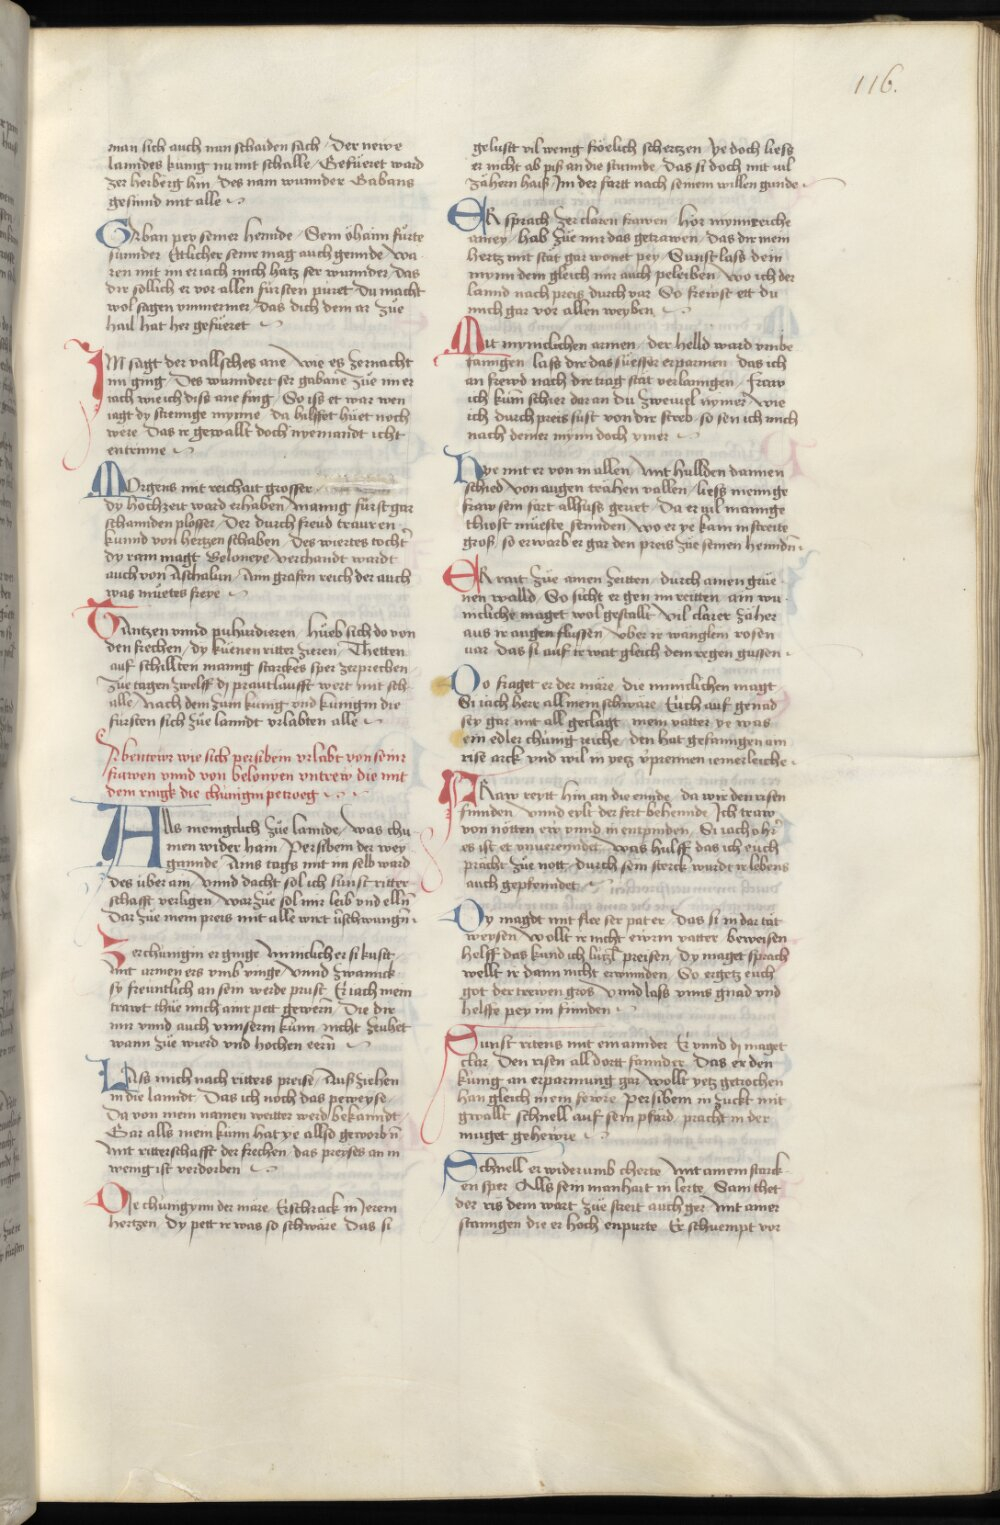 116.
man sich auch nun schaiden sach / Der newe
lanndes kunig nu mit schalle / Gefüeret ward
zer herberg hin / Des nam wunnder Gabans
gesind mit alle
Urban pey seiner hennde / Sein öhaim fürte
sunnder / Ettlicher seinr mag auch gennde / wa-
ren mit im er iach mich hatz ser wunnder / Das
dir söllich er vor allen fürsten puret / Du macht
wol sagen ymmermer / Das dich dein ar züe
hail hat her gefüeret
IM sagt der vallsches ane / wie es zernacht
im ging / Des wunndert ser gabane züe im er
iach wie ich diss ane fing / So ist et war wen
iagt dy strennge mynne / Da hilffet hüet noch
were / Das ir gewallt doch nyemandt icht
entrinne
MOrgens mit reichait grosser
dy hochzeit ward erhaben / mannig fürst gar
schannden plosser / Der durch freud trauren
kunnd von hertzen schaben / Des wiertes tocht
dy ram magt Beloneye / verchandt wardt
auch von Aschalun / Am grafen reich der auch
was muetes freye
TAntzen vnnd puhurdieren / hüeb sich do von
den frechen / dy küenen ritter zieren / Thetten
auf schillten mannig starckes sper zerprechen /
züe tagen zwelff di prautlaufft wert mit sch-
alle / Nach dem zum kunig vnd kunigin die
fürsten sich züe lanndt vrlabten alle
Abentewr wie sich persibein vrlabt von seinr
frawen vnnd von belonyen vntrew die mit
dem ringk die chunigin petroeg
Als menigclich züe lannde / was chu-
men wider haim / Persibein der wey-
gannde / Ains tags mit im selb ward
des über ain / vnnd dacht sol ich sunst ritter-
schafft verligen / war züe sol mir leib vnd elln
Dar züe mein preis mit alle wirt geschwungn
Zer chunigin er ginge / Mynnclich er si kusst /
Mit armen ers vmb vinge / vnnd zwannck
sy freuntlich an sein werde prust / Er iach mein
trawt thüe mich ainr pett gewern / Die dir
mir vnnd auch vnnserm kunn / nicht zeuhet
wann züe wierd vnd hochen eern
LAss mich nach ritters preise / Auss ziehen
in die lanndt / Das ich noch das peweyse /
Da von mein namen weitter werd bekanndt
Gar alls mein künn hat ye allso geworbn
Mit ritterschafft der frechen / das preyses an in
wenig ist verdorben
DIe chungyn der märe / Erschrack in Jerem
hertzen / Dy pett ir was so schwäre / Das si
gelustt vil wenig fröelich schertzen / ye doch liess
er nicht ab piss an die stunnde / Das si doch mit vil
zähern haiss / Jm der fartt nach seinem willen gunde
ER sprach zer claren frawen / hör mynneiche
amey / hab züe mir das getrawen / Das dir mein
hertz mit stät gar wonet pey / Sunst lass dein
mynn dem gleich mir auch peleiben / wo ich der
lannd nach preis durch var / So frewst ett du
mich gar vor allen weyben
MIt mynnclichen armen / der helld ward vmbe-
fanngen / lass dir das süesser erparmen / das ich
an frewd nach dir trag stät verlanngen / fraw
ich kum schier daran du zweiuel nymer / wie
ich durch preis süst von dir streb / so sen ich mich
nach deiner mynn doch ymer
HYe mit er von in allen / Mit hullden dannen
schied / von augen trähen vallen / liess mennige
fraw sein fart allsuss geriet / Da er vil mannige
thiost müeste seinden / wo er ye kam in streitte
gross / so erwarb er gar den preis züe seinen henndn
ER rait züe ainen zeitten / durch ainen grüe-
nen walld / So sicht er gen im reitten / ain mi-
nicliche maget wol gestallt / vil clarer zäher
aus ir augen flussen / vber ir wänglein rosen
var / das si auf ir wat gleich dem regen gussen
DO fraget er der märe / die mincklichen magt
Si iach herr all mein schwäre / Euch auf genad
sey gar mit all geclagt / mein vatter ye was
ein edler chunig reiche / den hat gefanngen ain
rise arck vnd wil in yetz v̈prennen iemerleiche
FRaw reytt hin an die ennde / da wir den risen
finnden / vnnd eylt der fert behennde / Ich traw
von nötten ew vnnd in enpinden / Si iach o hr̄
es ist et vnuerenndet / was hulff das ich euch
prächt züe nott / durch sein sterck wurdt ir lebens
auch gephenndet
DY magdt mit flee ser pat er / das si in dar tät
weysen / wollt ir nicht ewrm vatter beweisen
helff das kund ich lützl preisen / Dy maget sprach
wellt ir dann nicht erwinnden / So ergetz euch
got der trewen gros / vnnd lass vnns gnad vnd
helffe pey im finnden
Sunst ritens mit einannder / Er vnnd di maget
clar / Den risen all dortt fannder / Das er den
kunig an erparmung gar / wollt yetz getrochen
han gleich inein fewre / Persibein in zuckt mit
gwallt / schnell auf sein pfärd / pracht in der
maget gehewre
Schnell er widerumb cherte / Mit ainem starck-
en sper / Alls sein manhait in lerte / Sam thet
der ris dem wart züe streit auch ger / Mit ainer
stanngen die er hoch enpurte / Er schuempt vor